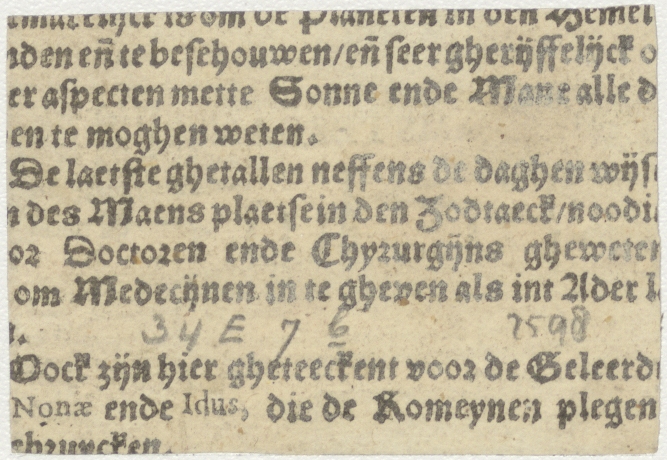 is om de Planeten in den Hemel
nden en̄ te beschouwen/en̄ seer gherijffelijck o
er aspecten mette Sonne ende Mane alle d
en te moghen weten.
De laetste ghetallen neffens de daghen wijs
n des Maens plaetse in den Zodiaeck/noodi
or Doctoren ende Chyrurgijns gheweten
om Medecijnen in te gheven als int Ader l
34 E 7 6 2598
Oock zijn hier gheteeckent voor de Geleerd
Nonæ ende Idus, die de Romeynen plegen
ebruycken.